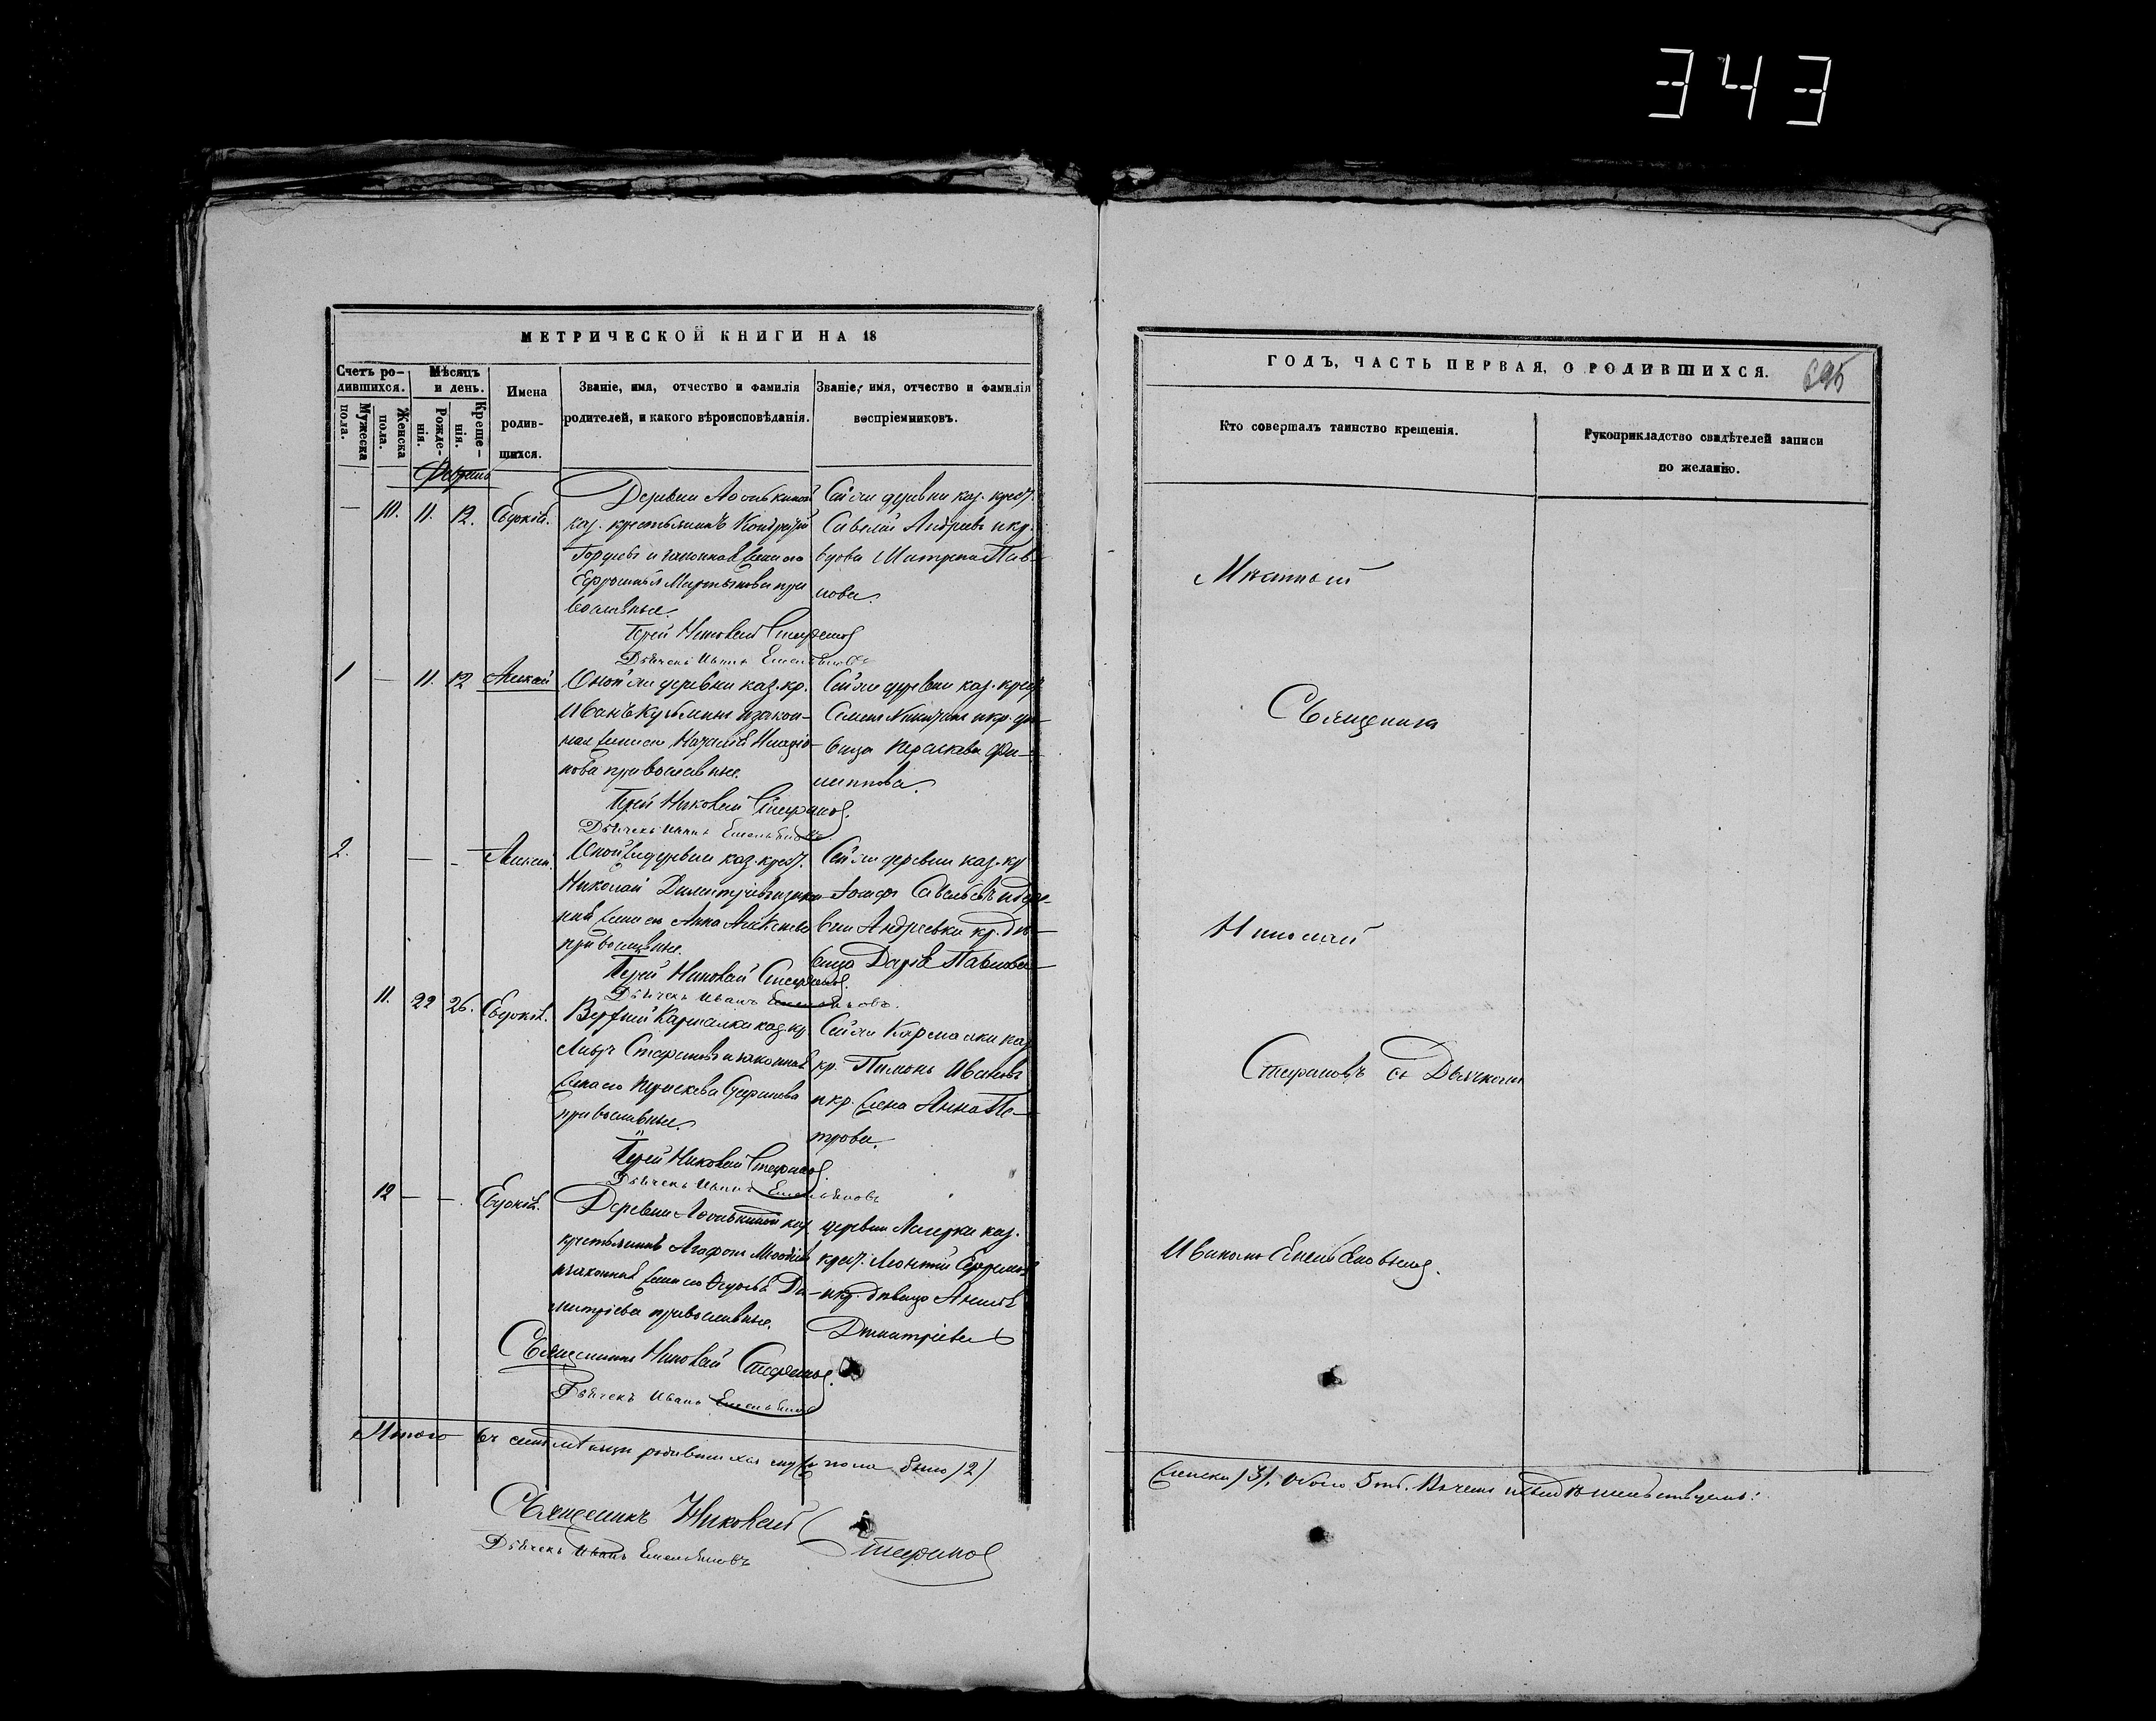 343
МЕТРИЧЕСКОЙ КНИГИ НА 18
Счетъ ро-
дившихся.
Мужеска
пола.
Женска
пола.
Мѣсяцъ
и день.
Рожде-
нія.
Креще-
нія.
Имена
родив-
шихся.
Званіе, имя, отчество и фамилія
родителей, и какого вѣроисповѣданія.
Званіе, имя, отчество и фамилія
воспріемниковъ.
Февраль
— 10. 11. 12. Евдокія.
Деревни
каз. крестьянинъ Кондратій
и законная жена его
Мартынова пра
вославные.
Іерей Николай Стефановъ
Дьячекъ Иванъ Емельяновъ
Сей же деревни каз. крест.
Савелій Андреевъ и кр.
вдова Матрена Пав-
лова.
1 — 11. 12
Оной же деревни каз. кр.
Иванъ Кузьминъ и закон-
ная жена его Наталія
нова православные.
Іерей Николай Стефановъ.
Дьячекъ Иванъ Емельяновъ
Сей же деревни каз. крест.
Семенъ Никитинъ и кр. дѣ-
вица Параскева Фи-
липпова.
2. — -
Оной же деревни каз. крест.
Николай Димитріевъ и закон
ная жена его Анна Алексеева
православные.
Іерей Николай Стефановъ.
Дьячекъ Иванъ Емельяновъ.
Сей же деревни каз. кр
Іосифъ Савельевъ и дере-
вни Андреевки кр. дѣ-
вица Дарія Павлова
11. 22 26. Евдокія.
Верхней Кармалки каз. кр.
Стефановъ и законная
жена его Параскева Стефанова
православные.
Іерей Николай Стефановъ.
Дьячекъ Иванъ Емельяновъ
Сей же Кармалки каз
кр. Пимонъ Ивановъ
и кр. жена Анна Пе-
трова.
12 — -. Евдокія.
Деревни каз
крестьянинъ Агафонъ
и законная жена его Ѳедосья Ди-
митріева православные.
Священникъ Николай Стефановъ.
Дьячекъ Иванъ Емельяновъ
деревни каз.
крест. Леонтій Ефремовъ
и кр. дѣвица
Димитріева
Итого въ семъ мѣсяцѣ родившихся муж. пола было /2/
Священникъ Николай Стефановъ
Дьячекъ Иванъ Емельяновъ
ГОДЪ, ЧАСТЬ ПЕРВАЯ, О РОДИВШИХСЯ.
695
Кто совершалъ таинство крещенія.
Рукоприкладство свидѣтелей записи
по желанію.
Мѣстный
Священникъ
Николай
Стефановъ съ Дьячкомъ
Иваномъ Емельяновымъ.
женска /3/. Обоего 5 Въ чемъ и свидѣтельствуемъ: